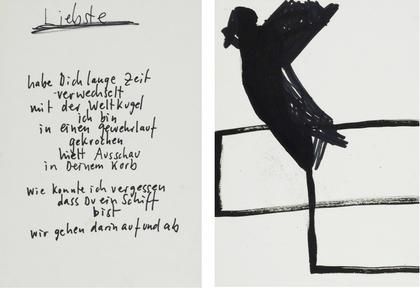 Liebste
habe Dich lange Zeit
verwechselt
mit der Weltkugel
ich bin
in einen Gewehrlauf
gekrochen
hielt Ausschau
in Deinem Korb
wie konnte ich vergessen
dass Du ein Schiff
bist
wir gehen darin auf und ab